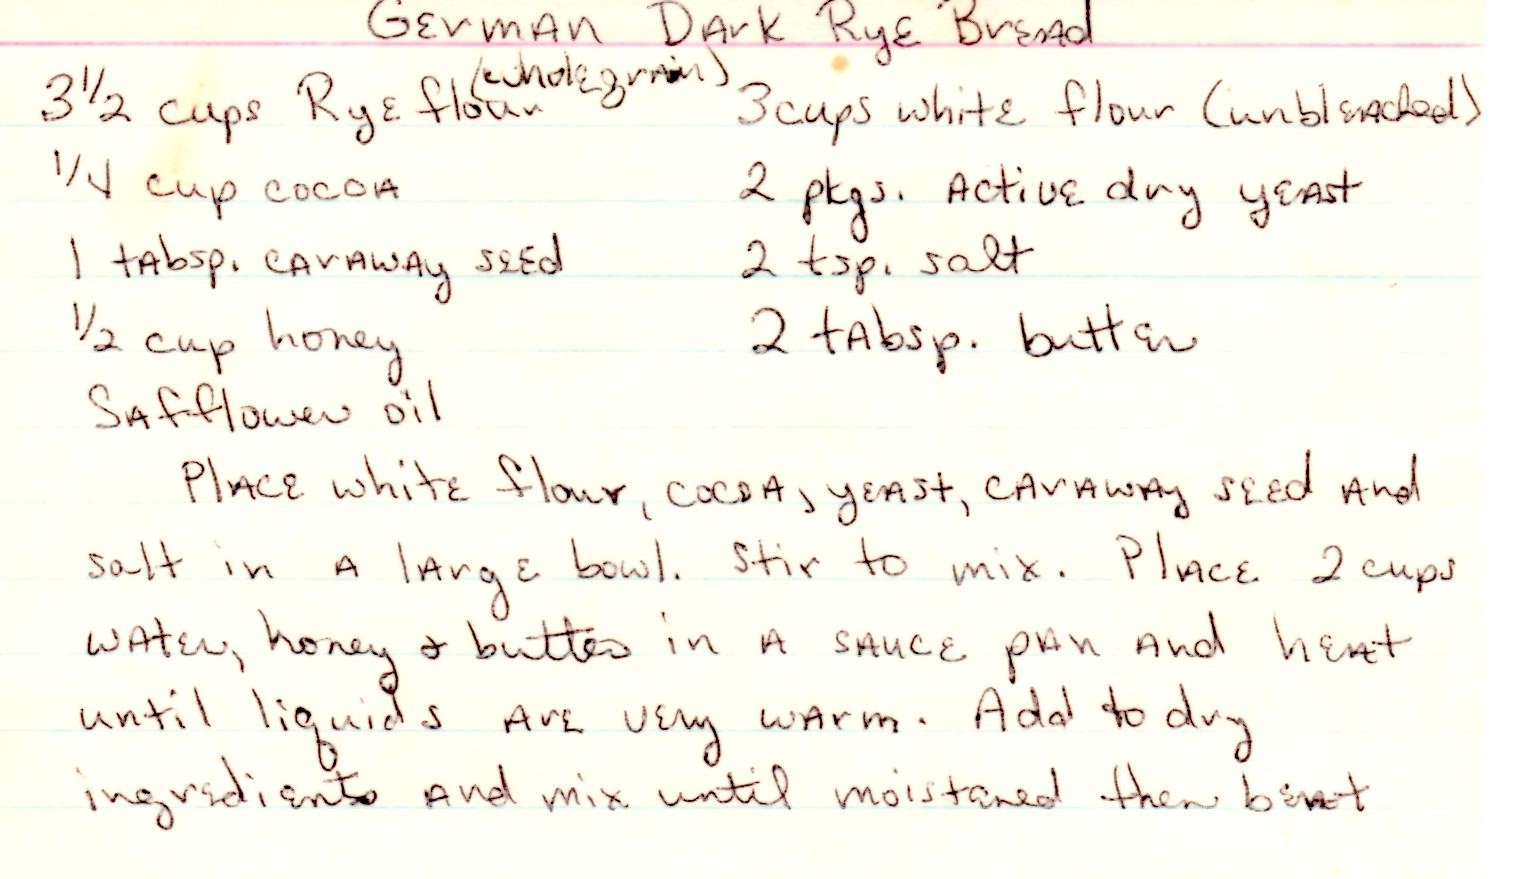 German Dark Rye Bread
3 1/2 cups Rye flour (wholegrain) 3 cups white flour (unbleached)
1/4 cup cocoa 2 pkgs. Active dry yeast
1 tabsp. caraway seed 2 tsp. salt
1/2 cup honey 2 tabsp. butter
Safflower oil
Place white flour, cocoa, yeast, caraway seed and
salt in a large bowl. Stir to mix. Place 2 cups
water, honey & butter in a sauce pan and heat
until liquids are very warm. Add to dry
ingredients and mix until moistened then beat